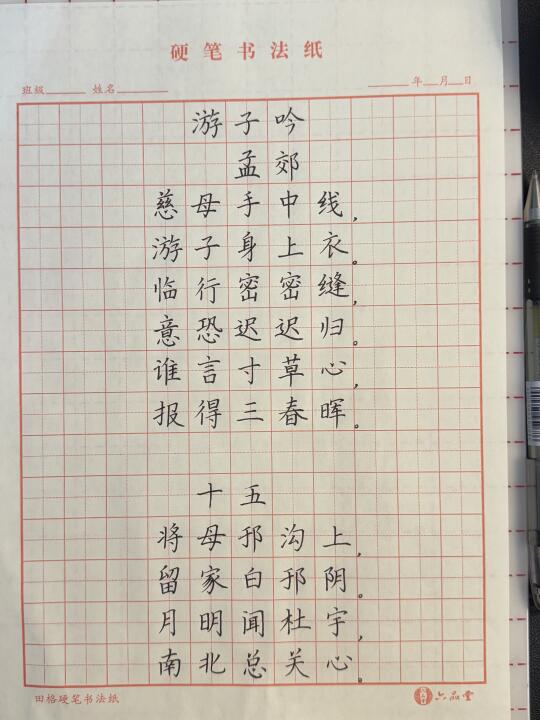 硬笔书法纸
班级 姓名 年 月 日
游子吟
孟郊
慈母手中线，
游子身上衣。
临行密密缝，
意恐迟迟归。
谁言寸草心，
报得三春晖。
十五
将母邗沟上，
留家白邗阴。
月明闻杜宇，
南北总关心。
田格硬笔书法纸
六品堂